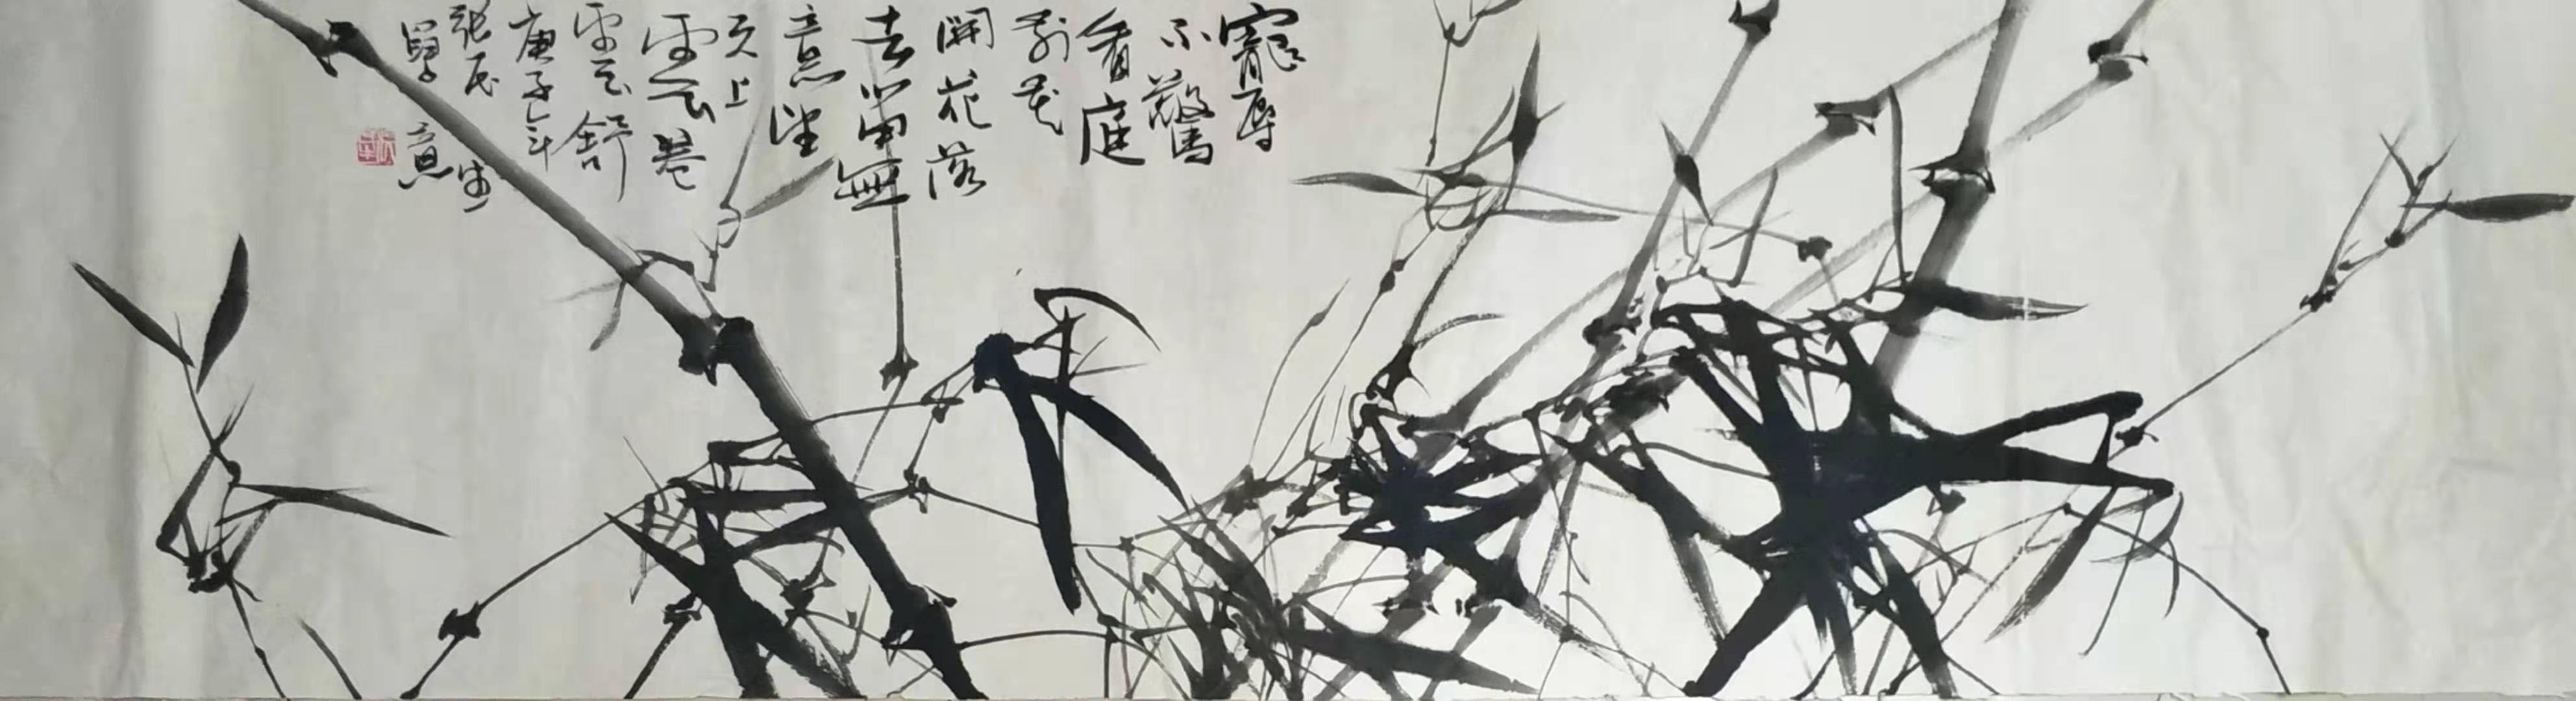 寵辱
不驚
看庭
前花
開花落
去留無
意望
天上
雲卷
雲舒
庚子年
張民生
寫意